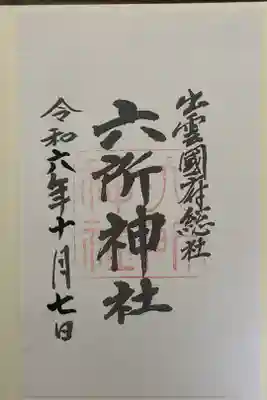 出雲國府総社
六所神社
令和六年十月七日